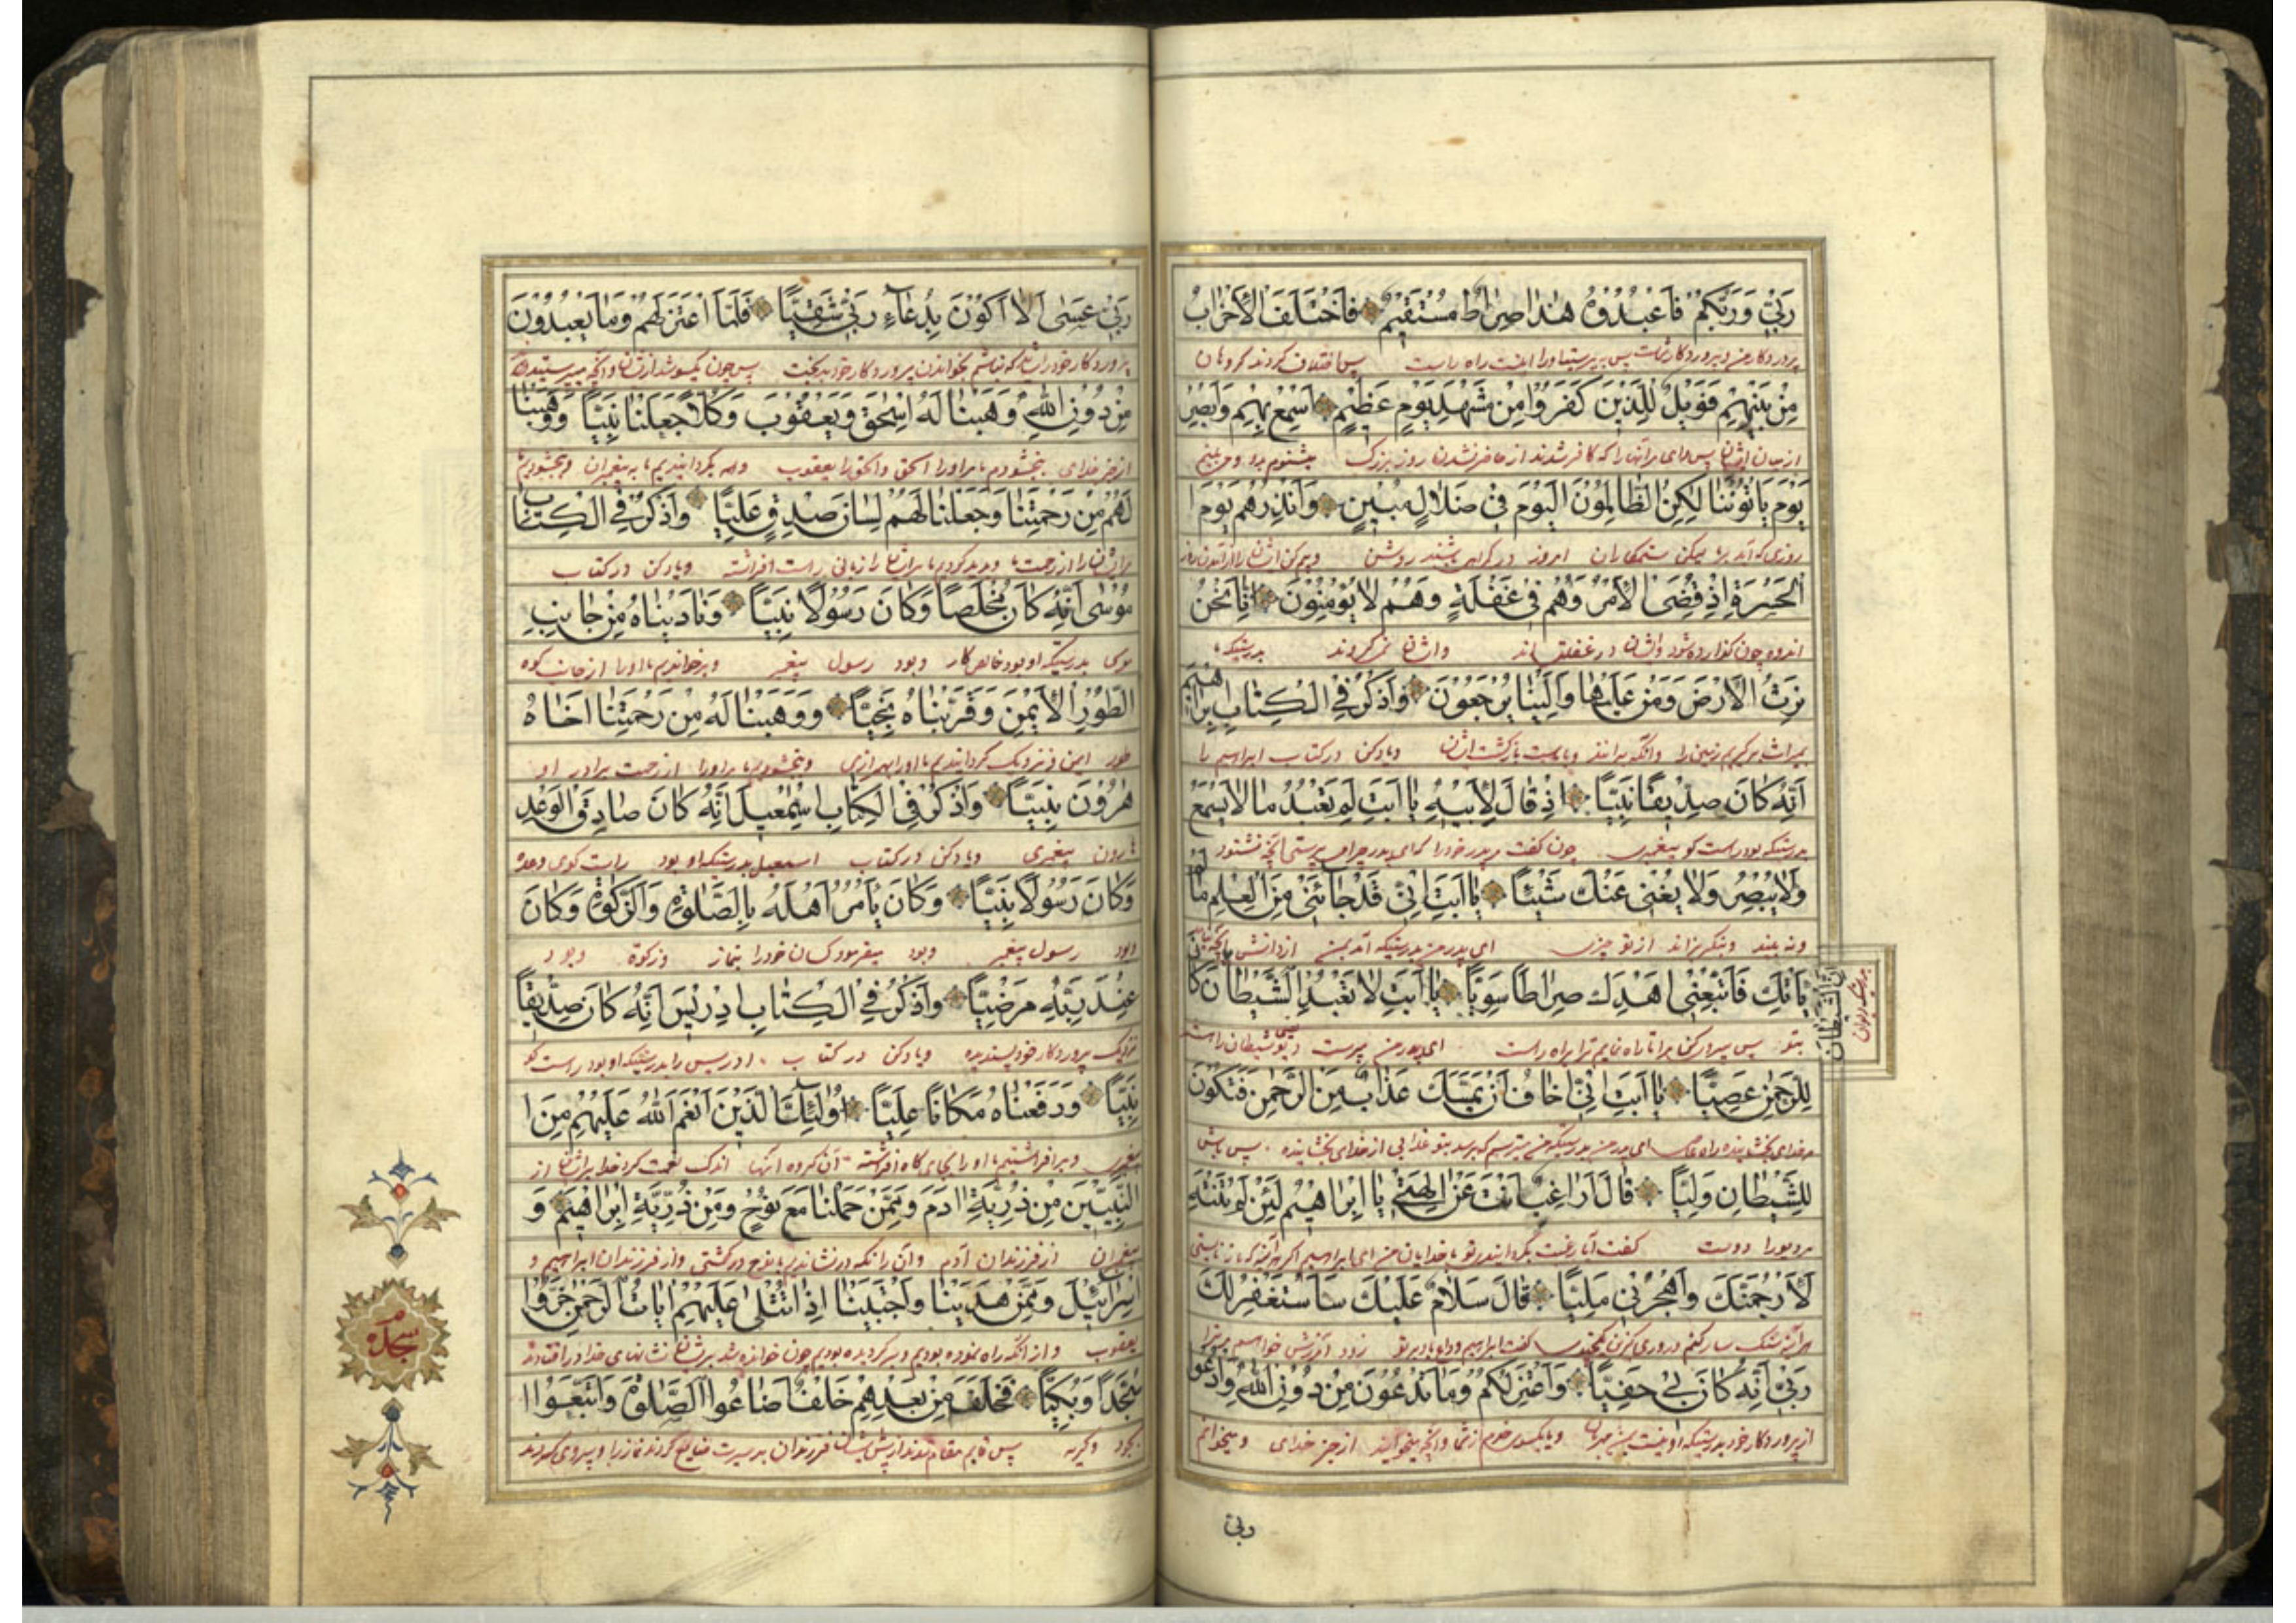 رَبّي وَرَبُّكُمْ فَاعْبُدُوهُ هٰذا صِراطٌ مُسْتَقيمٌ فَاخْتَلَفَ الْأَحْزابُ
پروردکار من و پروردکار شماست پس بپرستید او را اینست راه راست پس اختلاف کردند کروهان
مِنْ بَيْنِهِمْ فَوَيْلٌ لِلَّذينَ كَفَرُوا مِنْ مَشْهَدِ يَوْمٍ عَظيمٍ اَسْمِعْ بِهِمْ وَاَبْصِرْ
از میان ایشان پس وای مر آنان را که کافر شدند از حاضر شدن روز بزرک
يَوْمَ يَأْتُونَنا لٰكِنِ الظّالِمُونَ الْيَوْمَ في ضَلالٍ مُبينٍ وَاَنْذِرْهُمْ يَوْمَ ا
روزی که آیند ما لیکن ستمکاران امروز در کمراهی باشند روشن
لْحَسْرَةِ اِذْ قُضِيَ الْأَمْرُ وَهُمْ في غَفْلَةٍ وَهُمْ لا يُؤْمِنُونَ اِنّا نَحْنُ
اندوه چون کذارده شود وایشان در غفلت اند وایشان نمی کروند بدرستیکه ما
نَرِثُ الْأَرْضَ وَمَنْ عَلَيْها وَاِلَيْنا يُرْجَعُونَ وَاذْكُرْ فِي الْكِتابِ اِبْراهيمَ
زمین را وانکه بر انند وبماست بازکشت ایشان ویاد کن در کتاب ابراهیم را
اِنَّهُ كانَ صِدّيقًا نَبِيًّا اِذْ قالَ لِأَبيهِ يا اَبَتِ لِمَ تَعْبُدُ ما لا يَسْمَعُ
بدرستیکه بود راست کو پیغمبری چون کفت مر پدر خود را که ای پدر چرا می پرستی آنچه نشنود
وَلا يُبْصِرُ وَلا يُغْني عَنْكَ شَيْئًا يا اَبَتِ اِنّي قَدْ جاءَني مِنَ الْعِلْمِ ما لَمْ
ونه بیند از تو چیزی ای پدر من بدرستیکه آمد بمن از دانش آنچه
يَأْتِكَ فَاتَّبِعْني اَهْدِكَ صِراطًا سَوِيًّا يا اَبَتِ لا تَعْبُدِ الشَّيْطانَ كانَ
بتو پس پیروی کن مرا تا راه نمایم ترا براه راست ای پدر من مپرست دیو شیطان را
اِنَّ الشَّيْطانَ
لِلرَّحْمٰنِ عَصِيًّا يا اَبَتِ اِنّي اَخافُ اَنْ يَمَسَّكَ عَذابٌ مِنَ الرَّحْمٰنِ فَتَكُونَ
ای پدر من بدرستیکه من میترسم که برسد بتو عذابی از خدای بخشاینده پس باشی
لِلشَّيْطانِ وَلِيًّا قالَ اَراغِبٌ اَنْتَ عَنْ الِهَتي يا اِبْراهيمُ لَئِنْ لَمْ تَنْتَهِ
مر دیو را دوست کفت آیا رغبت کرداننده تو خدایان من ای ابراهیم اکر
لَأَرْجُمَنَّكَ وَاهْجُرْني مَلِيًّا قالَ سَلامٌ عَلَيْكَ سَاَسْتَغْفِرُ لَكَ
هر آینه سنک سار کنم ودوری کزین کفت ابراهیم وداع باد بر تو زود آمرزش خواهم
رَبّي اِنَّهُ كانَ بي حَفِيًّا وَاَعْتَزِلُكُمْ وَما تَدْعُونَ مِنْ دُونِ اللّٰهِ وَاَدْعُو
از پروردکار خود بدرستیکه او از شما وآنچه میخوانید از جز خدای ومیخوانم
ربی
رَبّي عَسٰى اَلّا اَكُونَ بِدُعاءِ رَبّي شَقِيًّا فَلَمَّا اعْتَزَلَهُمْ وَما يَعْبُدُونَ
پروردکار خود را شاید که نباشم بخواندن پروردکار خود بدبخت پس چون یکسو شد از ایشان وآنچه می پرستیدند
مِنْ دُونِ اللّٰهِ وَهَبْنا لَهُ اِسْحٰقَ وَيَعْقُوبَ وَكُلًّا جَعَلْنا نَبِيًّا وَوَهَبْنا
از جز خدای بخشودیم ما او را اسحق یعقوب وهمه کردانیدیم ما پیغمبران وبخشودیم
لَهُمْ مِنْ رَحْمَتِنا وَجَعَلْنا لَهُمْ لِسانَ صِدْقٍ عَلِيًّا وَاذْكُرْ فِي الْكِتابِ
ایشان را از رحمت ما ایشان را زبانی راست افراشته ویاد کن در کتاب
مُوسٰى اِنَّهُ كانَ مُخْلَصًا وَكانَ رَسُولًا نَبِيًّا وَنادَيْناهُ مِنْ جانِبِ
موسی بدرستیکه او بود خالص کار وبود رسول پیغمبر وبرخواندیم ما او را از جانب کوه
الطُّورِ الْأَيْمَنِ وَقَرَّبْناهُ نَجِيًّا وَوَهَبْنا لَهُ مِنْ رَحْمَتِنا اَخاهُ
طور ایمن ونزدیک کردانیدیم ما او را بهر رازی وبخشودیم ما او را از رحمت برادر او
هٰرُونَ نَبِيًّا وَاذْكُرْ فِي الْكِتابِ اِسْمٰعيلَ اِنَّهُ كانَ صادِقَ الْوَعْدِ
هارون پیغمبری ویاد کن در کتاب اسمعیل بدرستیکه او بود راست کوی وعده
وَكانَ رَسُولًا نَبِيًّا وَكانَ يَأْمُرُ اَهْلَهُ بِالصَّلٰوةِ وَالزَّكٰوةِ وَكانَ
وبود رسول پیغمبر وبود میفرمود کسان خود را بنماز وزکوة وبود
عِنْدَ رَبِّهِ مَرْضِيًّا وَاذْكُرْ فِي الْكِتابِ اِدْريسَ اِنَّهُ كانَ صِدّيقًا
نزدیک پروردکار خود پسندیده ویاد کن در کتاب ادریس را بدرستیکه او بود راست کو
نَبِيًّا وَرَفَعْناهُ مَكانًا عَلِيًّا اُولٰئِكَ الَّذينَ اَنْعَمَ اللّٰهُ عَلَيْهِمْ مِنَ ا
پیغمبر وبر افراشتیم ما او را بجای کاه افراشته آن کروه آنها نعمت کرد خدا بر ایشان از
لنَّبِيّينَ مِنْ ذُرِّيَّةِ ادَمَ وَمِمَّنْ حَمَلْنا مَعَ نُوحٍ وَمِنْ ذُرِّيَّةِ اِبْراهيمَ وَ
پیغمبران از فرزندان آدم وآن را که در نشاندیم با نوح در کشتی واز فرزندان ابراهیم و
اِسْرائيلَ وَمِمَّنْ هَدَيْنا وَاجْتَبَيْنا اِذا تُتْلٰى عَلَيْهِمْ اياتُ الرَّحْمٰنِ خَرُّوا
یعقوب واز آنکه راه نموده بودیم وبر کزیده بودیم چون خوانده شد بر ایشان نشانهای خدا در افتادند
سُجَّدًا وَبُكِيًّا فَخَلَفَ مِنْ بَعْدِهِمْ خَلْفٌ اَضاعُوا الصَّلٰوةَ وَاتَّبَعُوا ا
سجود وکریه پس قایم مقام شدند از پس ایشان فرزندان بد سیرت ضایع کردند نماز را وپیروی کردند
سجده